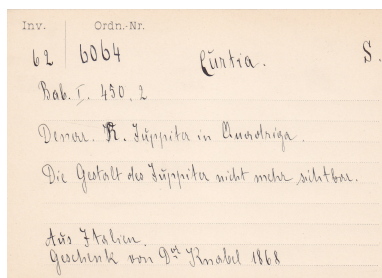 Inv. Ordn.-Nr.
62 6064 Curtia. S.
Bab. I. 450, 2
Denar. R. Juppiter in Quadriga.
Die Gestalt des Juppiter nicht mehr sichtbar.
Aus Italien.
Geschenk von Dr Knabel 1868